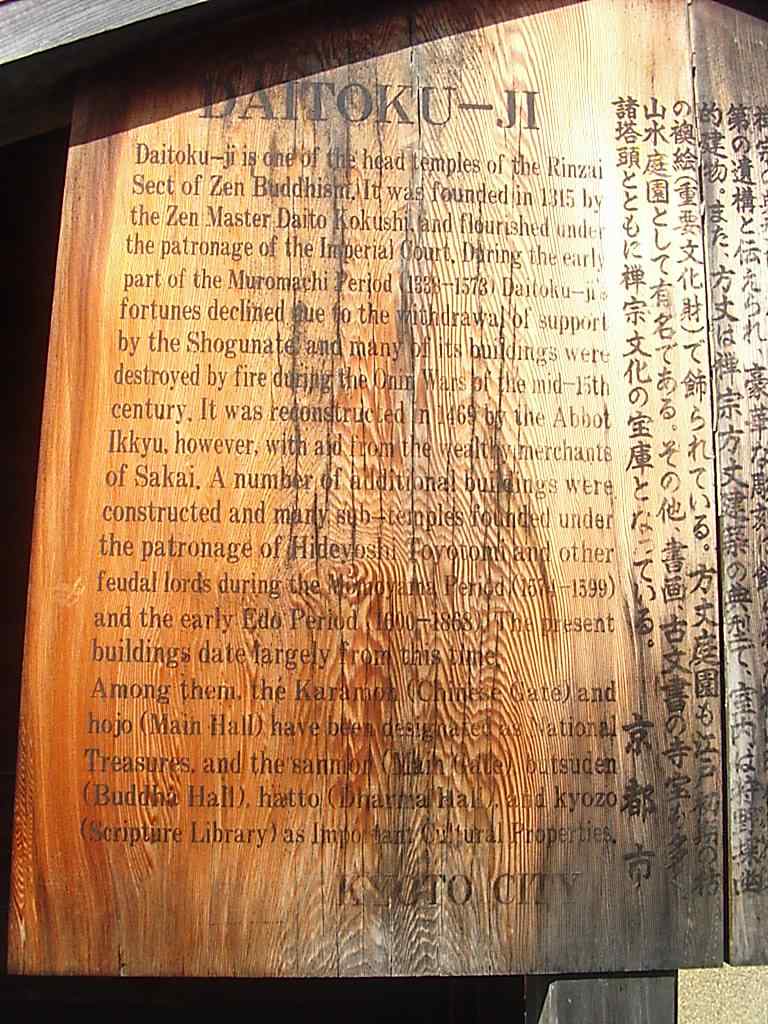 DAITOKU-JI
Daitoku-ji is one of the head temples of the Rinzai
Sect of Zen Buddhism. It was founded in 1315 by
the Zen Master Daito Kokushi, and flourished under
the patronage of the Imperial Court. During the early
part of the Muromachi Period (1338-1573) Daitoku-ji's
fortunes declined due to the withdrawal of support
by the Shogunate and many of its buildings were
destroyed by fire during the Onin Wars of the mid-15th
century. It was reconstructed in 1469 by the Abbot
Ikkyu, however, with aid from the wealthy merchants
of Sakai. A number of additional buildings were
constructed and many sub-temples founded under
the patronage of Hideyoshi Toyotomi and other
feudal lords during the Momoyama Period (1574-1599)
and the early Edo Period (1600-1868). The present
buildings date largely from this time.
Among them, the Karamon (Chinese Gate) and
hojo (Main Hall) have been designated as National
Treasures, and the sanmon (Main Gate), butsuden
(Buddha Hall), hatto (Dharma Hall), and kyozo
(Scripture Library) as Important Cultural Properties.
KYOTO CITY
第の遺構と伝えられ、豪華な彫刻
的建物。また、方丈は禅宗方丈建築の典型で、室内は狩野
の襖絵(重要文化財)で飾られている。方丈庭園も江戸初期の枯
山水庭園として有名である。その他、書画、古文書の寺宝も多く
諸塔頭とともに禅宗文化の宝庫となっている。
京都市